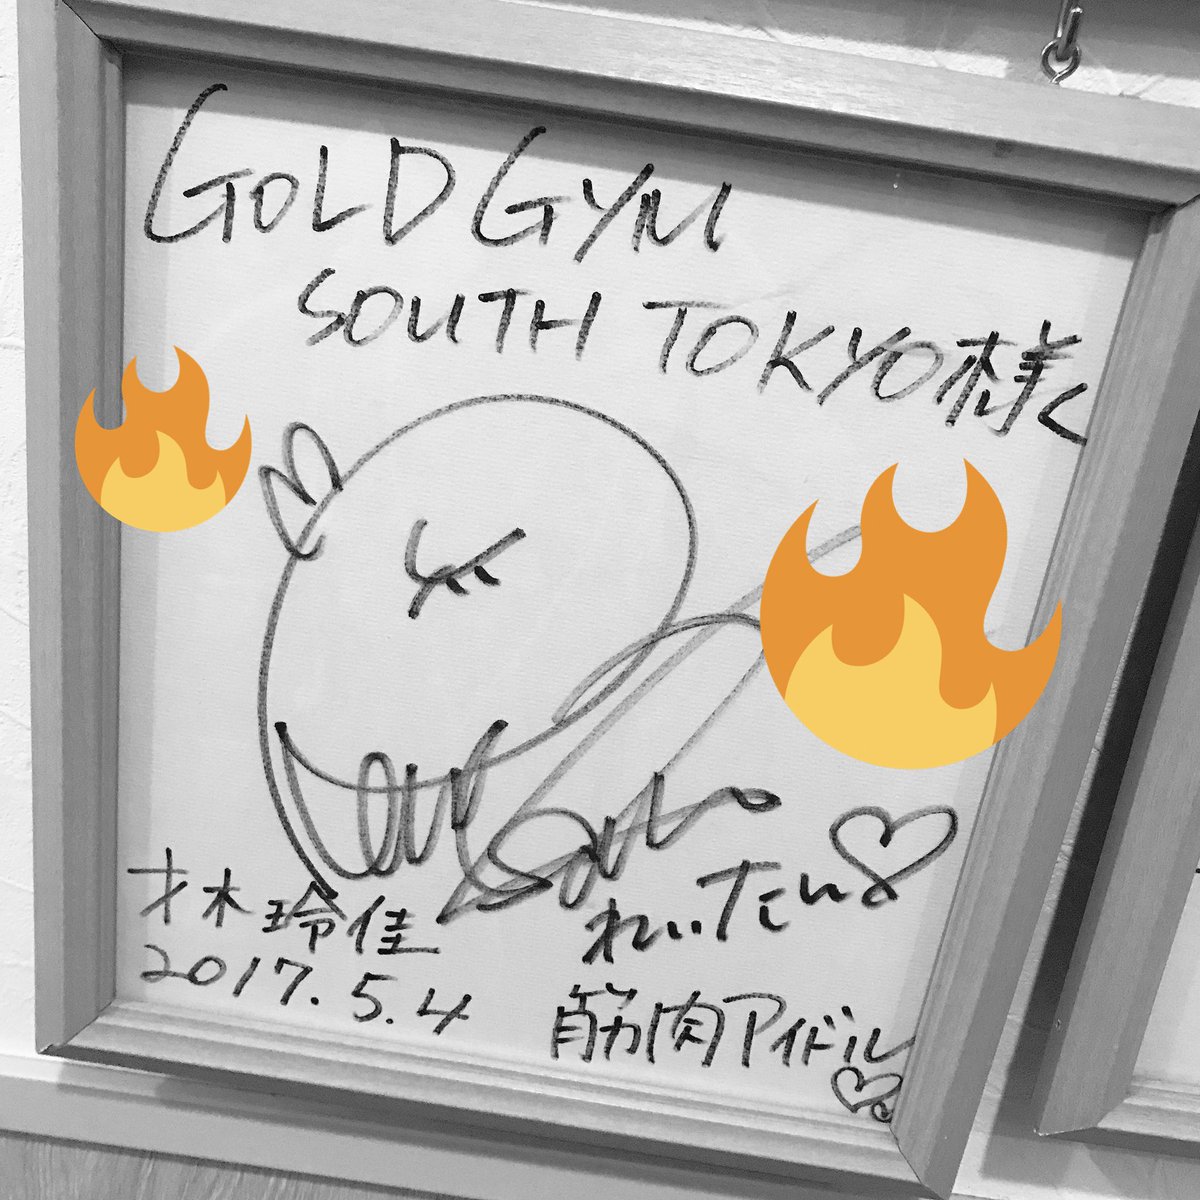 GOLD GYM
SOUTH TOKYO様へ
才木玲佳
2017.5.4
れいたん
筋肉アイドル